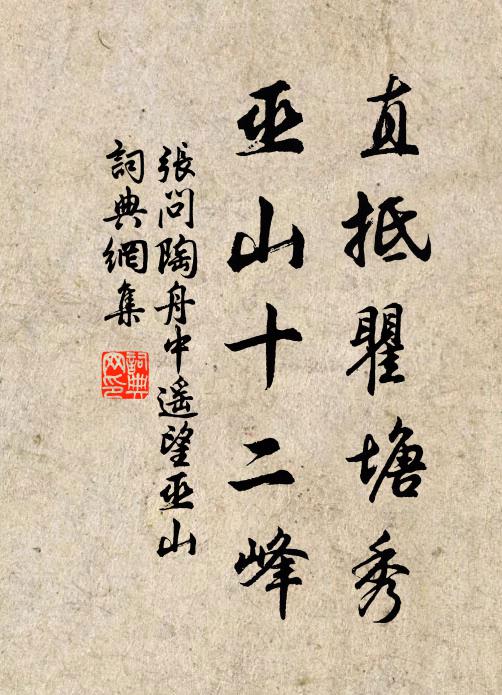 直抵瞿塘秀
巫山十二峰
張問陶舟中遥望巫山
詞典網集
詞典网印